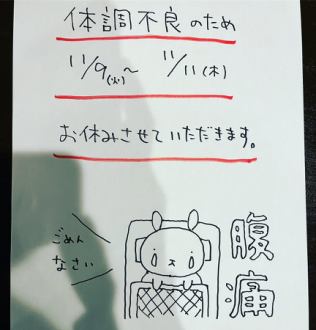 体調不良のため
11/9(火)〜11/11(木)
お休みさせていただきます。
ごめん
なさい
腹
痛